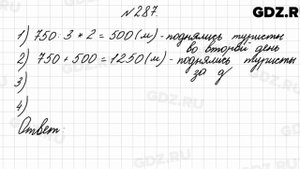 № 287.
GDZ.R
1) 750 : 3 * 2 = 500 (м) - поднялись туристы
во второй день
2) 750 + 500 = 1250 (м) - поднялись туристы
за д
3)
4)
Ответ:
GDZ.RU